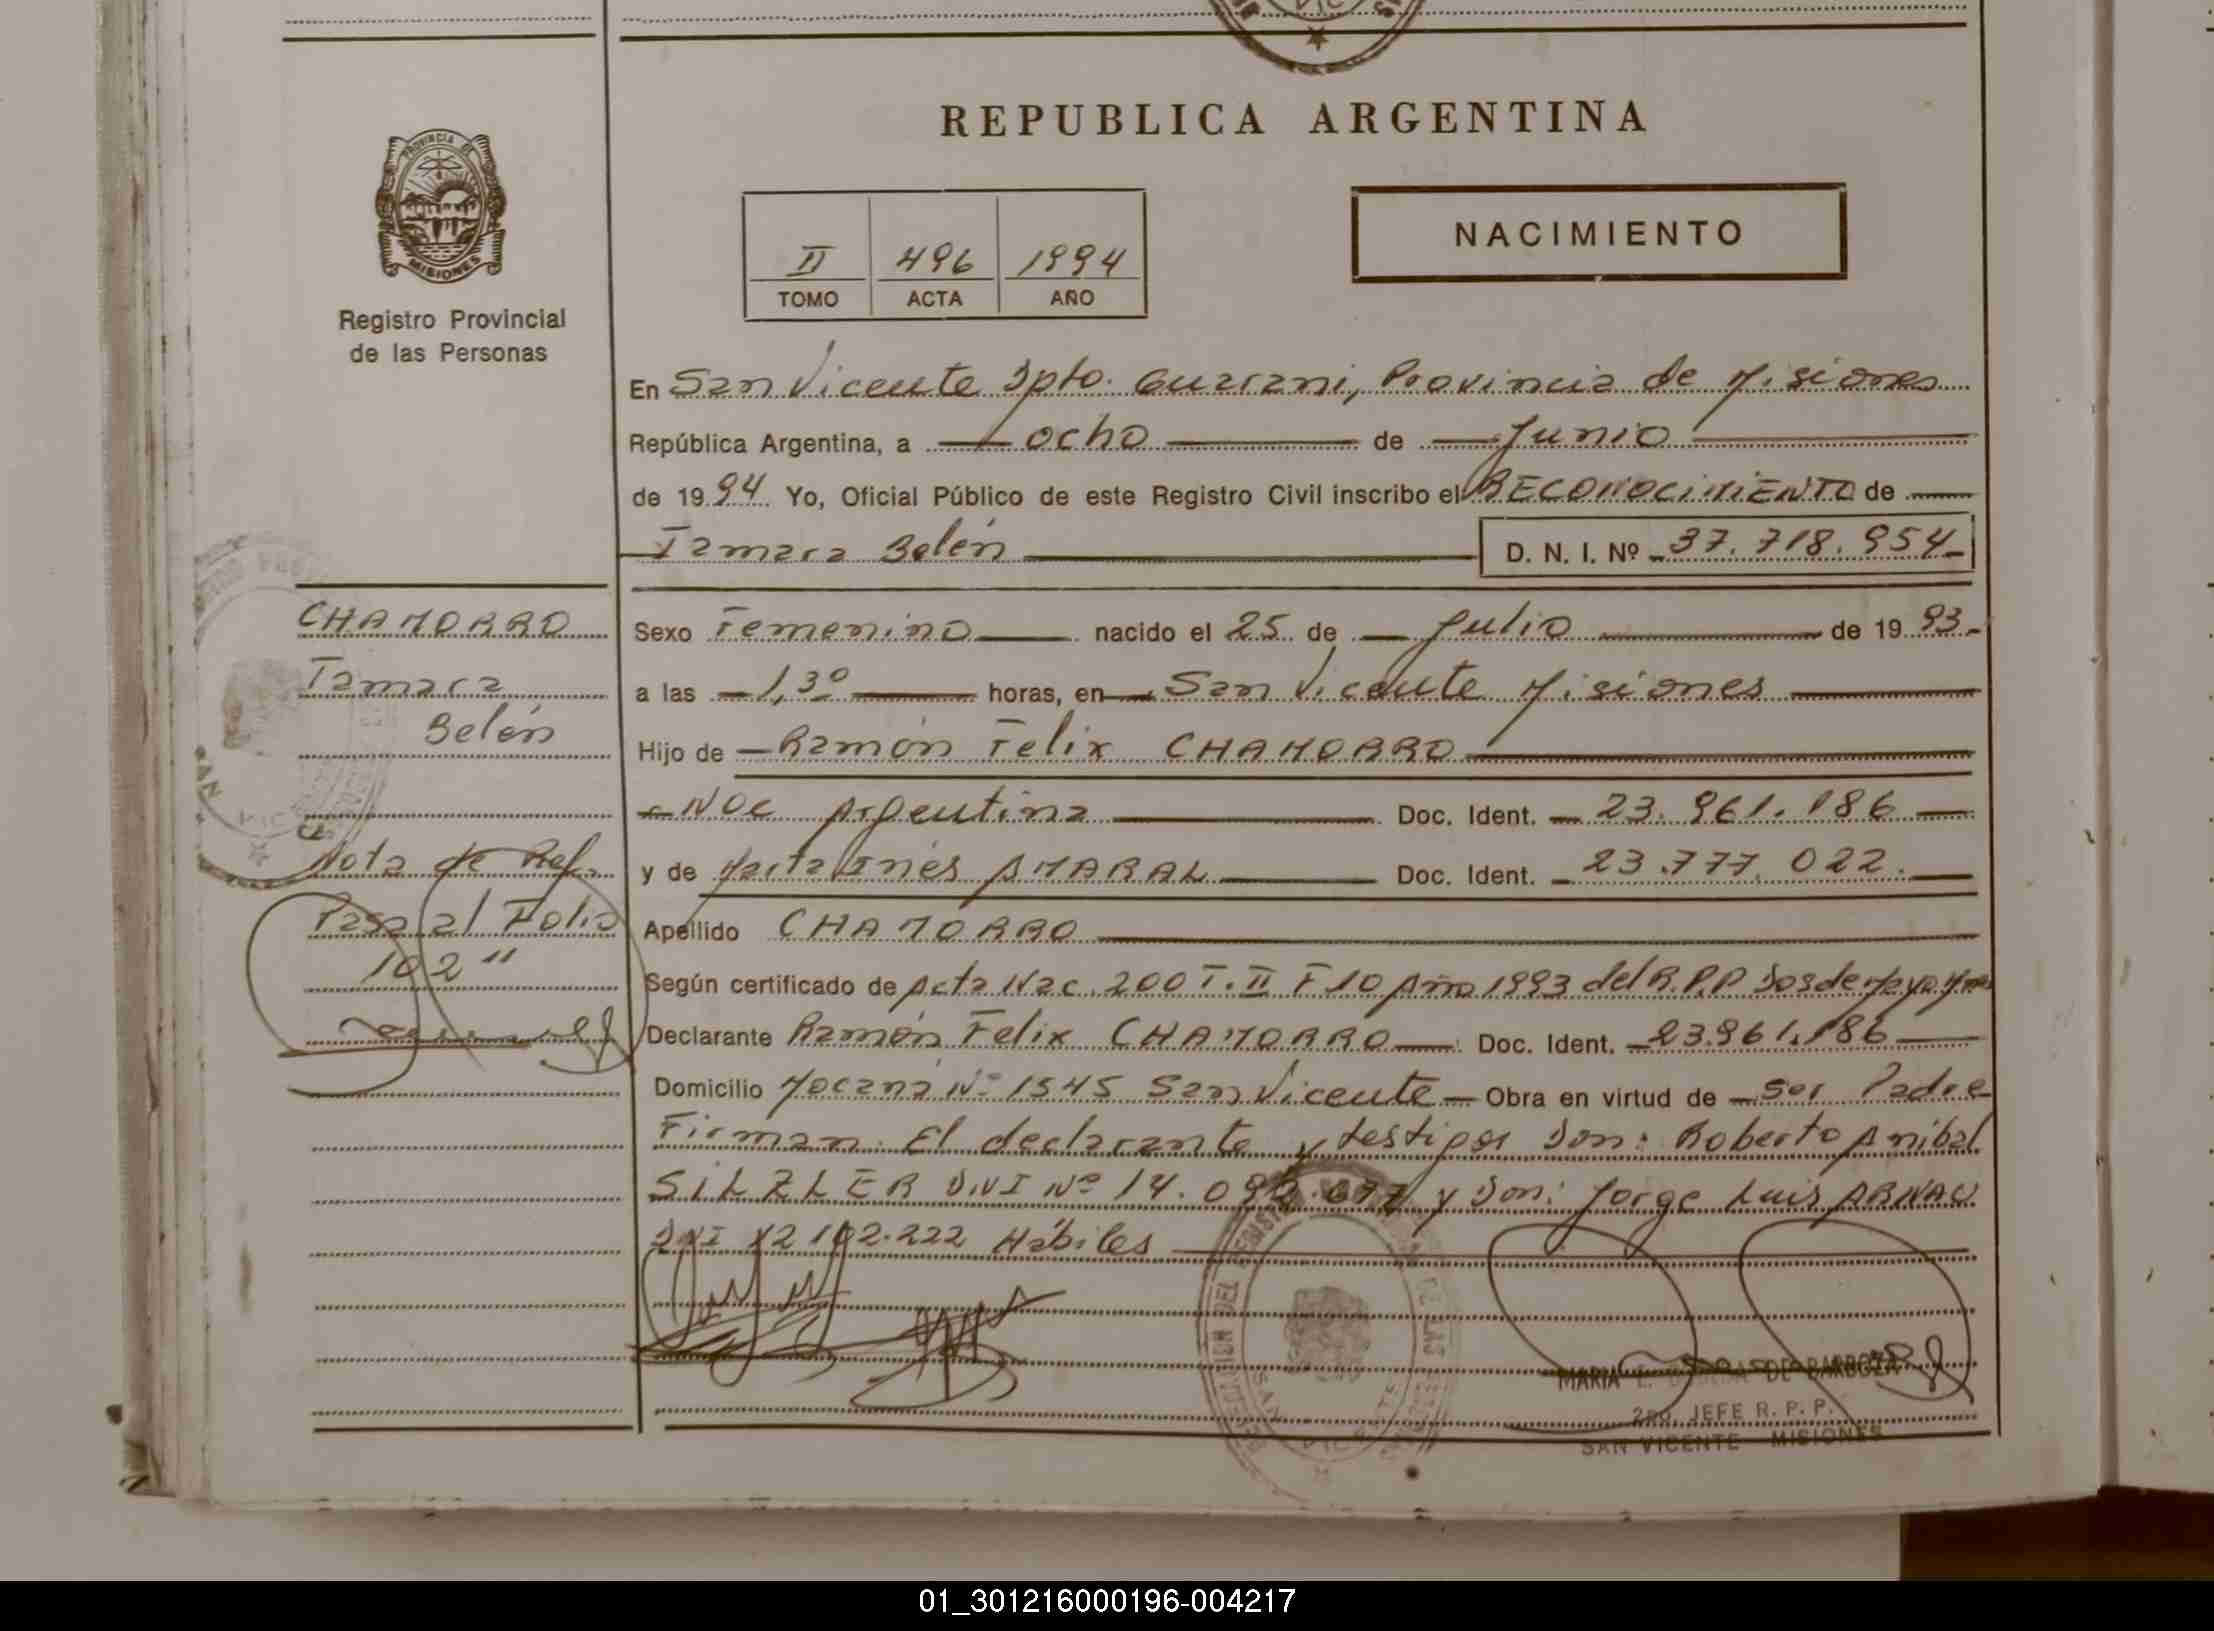 REPUBLICA ARGENTINA
PROVINCIA DE
MISIONES
Registro Provincial
de las Personas
II 496 1994
TOMO ACTA AÑO
NACIMIENTO
En San Vicente Dpto. Guarani, Provincia de Misiones
República Argentina, a ocho de Junio
de 1994 Yo, Oficial Público de este Registro Civil inscribo el RECONOCIMIENTO de
Tamara Belén D. N. I. Nº 37.718.954
CHAMORRO
Tamara
Belén
Nota de Ref.
Pasa al Folio
102"
Sexo Femenino nacido el 25 de Julio de 1993.
a las 1,30 horas, en San Vicente Misiones
Hijo de Ramón Felix CHAMORRO
Nac Argentina Doc. Ident. 23.961.186
y de Marta Inés AMARAL Doc. Ident. 23.777.022.
Apellido CHAMORRO
Según certificado de Acta Nac. 200 T. II F 10 Año 1993 del R.P.P Dos de Mayo
Declarante Ramón Felix CHAMORRO Doc. Ident. 23.961.186
Domicilio Nº 1545 San Vicente Obra en virtud de ser Padre
Firman: El declarante y testigos Don: Roberto Anibal
SILZLER DNI Nº 14. y Don: Jorge Luis
DNI 12.102.222 Hábiles
MARIA DE BARBOZA
2do. JEFE R. P. P.
SAN VICENTE MISIONES
01_301216000196-004217